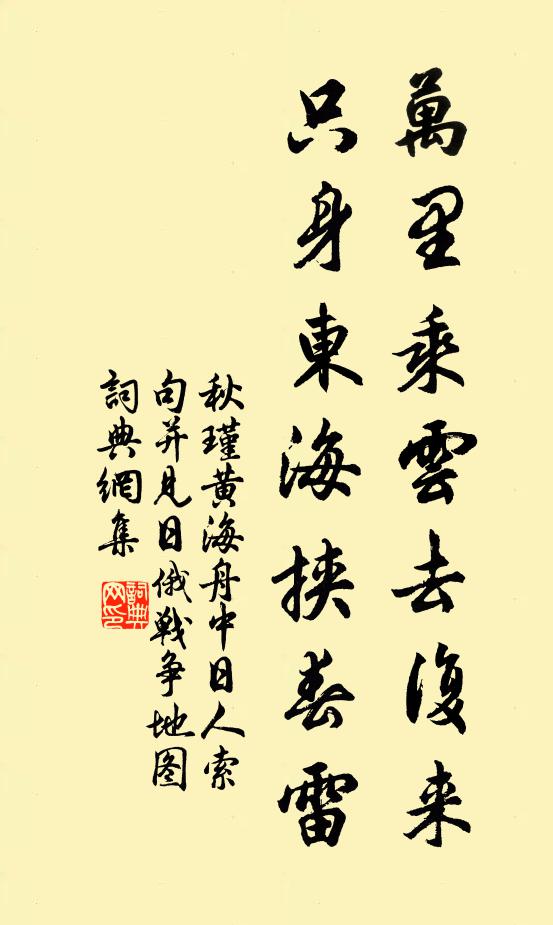 萬里乘雲去復来
只身東海挾春雷
秋瑾黄海舟中日人索
句并見日俄戦争地图
詞典網集
詞典网印